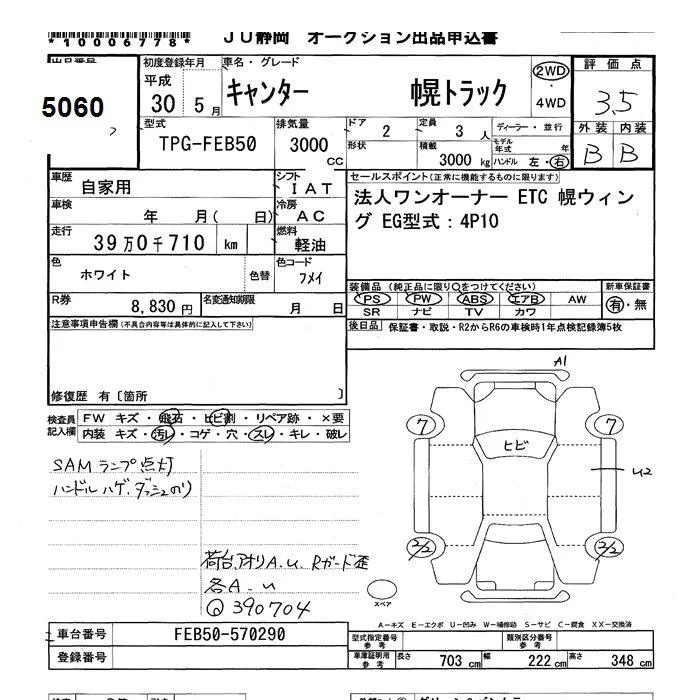 *10006778*
JU静岡 オークション出品申込書
出品番号
5060
初度登録年月
平成
30 5 月
車名・グレード
キャンター 幌トラック
2WD
4WD
評価点
3.5
外装 内装
B B
型式
TPG-FEB50
排気量
3000
CC
ドア
2
形状
定員
3 人
積載
3000 kg
ディーラー・並行
モデル年式 年
ハンドル 左・右
車歴
自家用
シフト
IAT
車検
年 月( 日)
冷房
AC
走行
39万0千710 km
燃料
軽油
セールスポイント(正常に機能するものに限ります)
法人ワンオーナー ETC 幌ウィン
グ EG型式:4P10
色
ホワイト
色替
色コード
フメイ
R券
8,830円
名変通知期限
月 日
装備品 (純正品に限り○をつけてください)
PS PW ABS エアB AW
SR ナビ TV カワ
新車保証書
有・無
後日品 保証書・取説・R2からR6の車検時1年点検記録簿5枚
注意事項申告欄(不具合内容等は具体的に記入して下さい)
修復歴 有〔箇所 〕
検査員
記入欄
FW キズ・飛石・ヒビ割・リペア跡・×要
内装 キズ・汚レ・コゲ・穴・スレ・キレ・破レ
SAMランプ点灯
ハンドルハゲ、ダッシュのり
荷台、アオリA.U Rガード歪
各A.U
Q 390704
A1
7
7
ヒビ
U2
2/2
スペア
A-キズ E-エクボ U-凹み W-補修跡 S-サビ C-腐食 XX-交換済
車台番号
FEB50-570290
登録番号
型式指定番号
参考
類別区分番号
参考
車庫証明用
参考
長さ 703 cm 幅 222 cm 高さ 348 cm